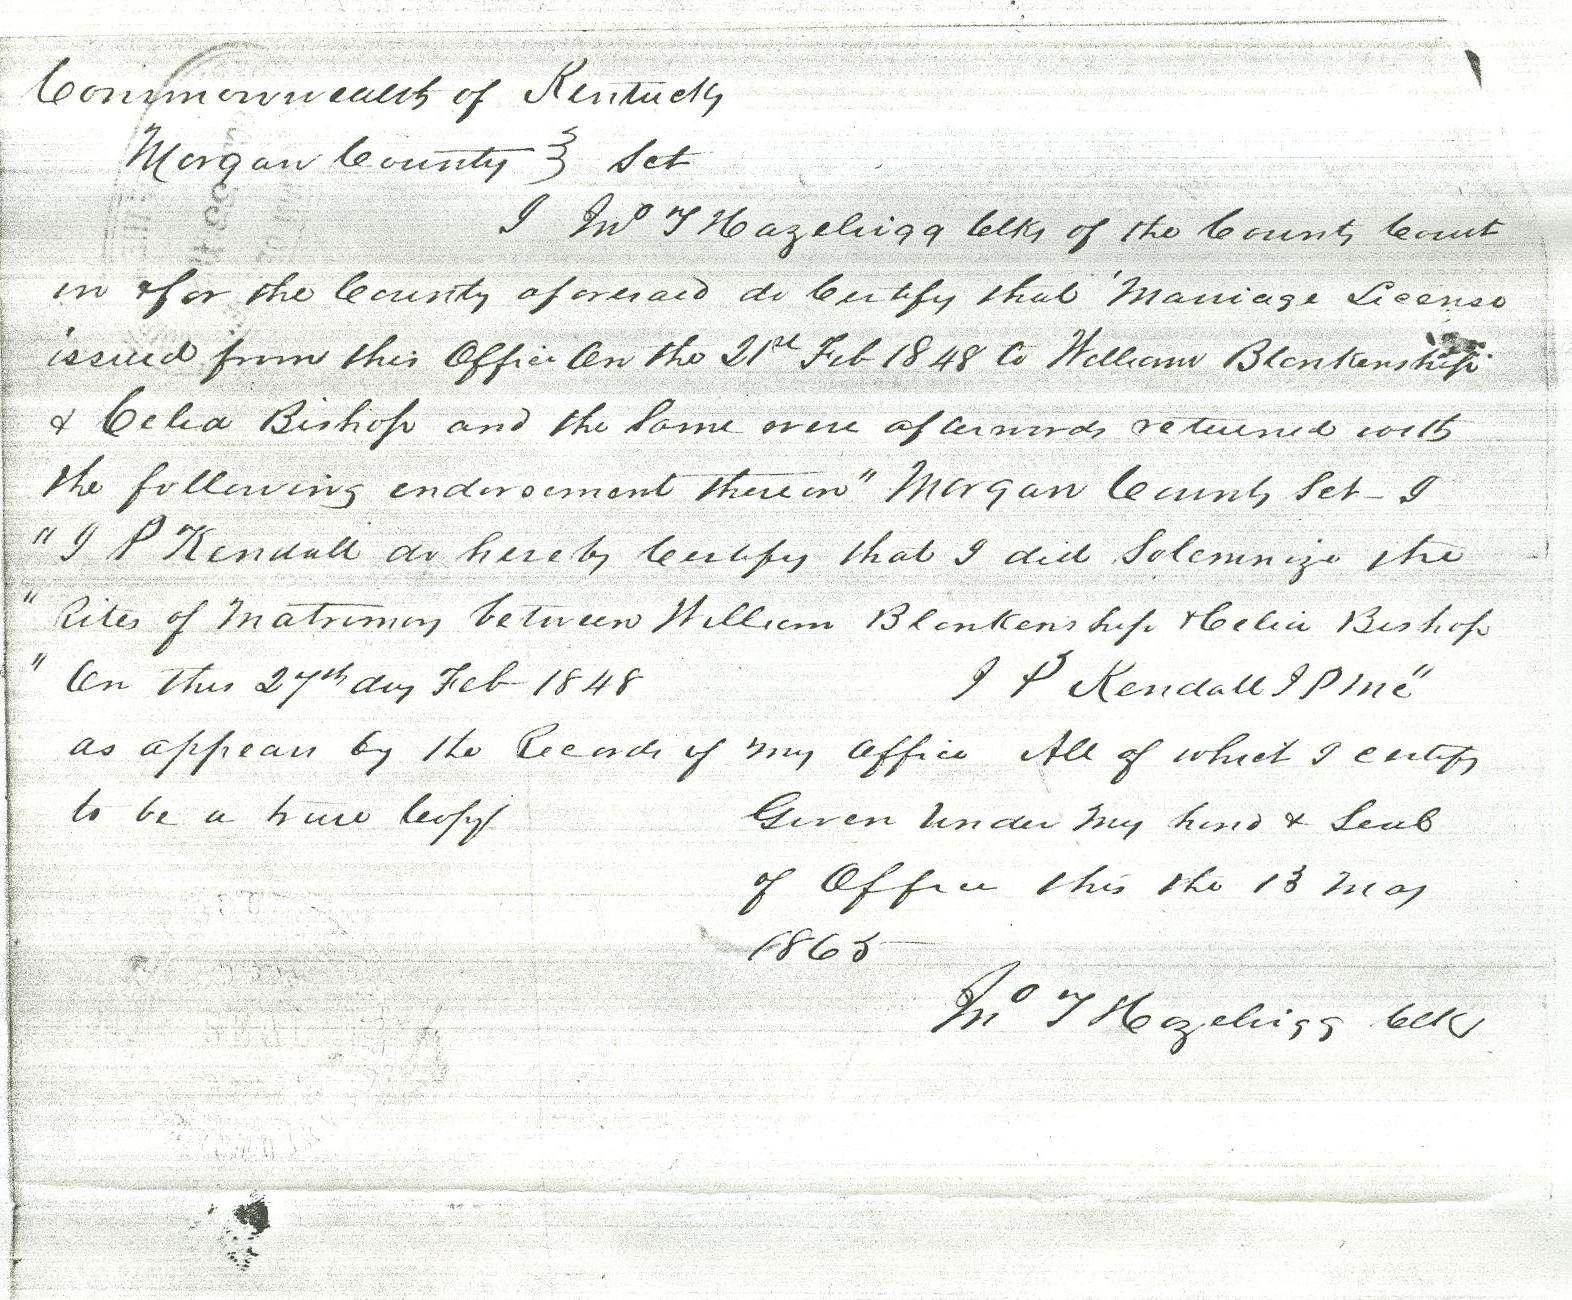 Commonwealth of Kentucky
Morgan County } Sct
I Jno T Hazelrigg Clk of the County Court
in & for the County aforesaid do Certify that Marriage License
issued from this Office On the 21st Feb 1848 to William Blankenship
& Celia Bishop and the Same were afterwards returned with
the following endorsement thereon " Morgan County Sct - I
" J P Kendall do hereby Certify that I did Solemnize the
" Rites of Matrimony between William Blankenship & Celia Bishop
" On this 27th day Feb 1848 J P Kendall J P M C "
as appears by the Records of my Office All of which I certify
to be a true Copy Given Under My hand & Seal
of Office this the 13 May
1865
Jno T Hazelrigg Clk